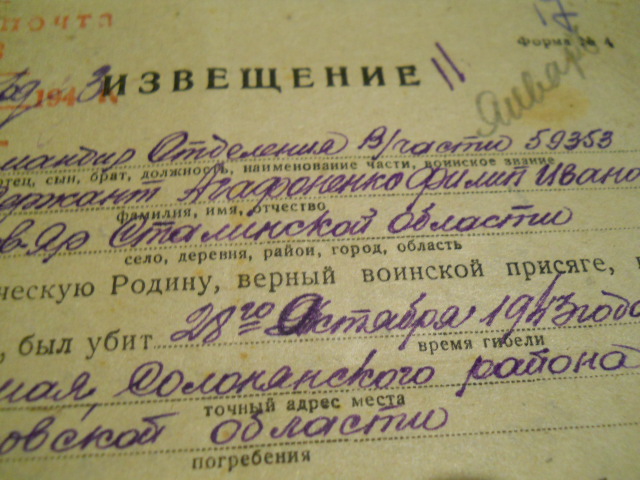 почта
17
Форма № 4
194 3
ИЗВЕЩЕНИЕ 11
Январь
мандир Отделения В/части 59353
тец, сын, брат, должность, наименование части, воинское звание
ержант Агафоненко Филип Ивано
фамилия, имя, отчество
в-Яр Сталинской области
село, деревня, район, город, область
ческую Родину, верный воинской присяге,
, был убит 28го Октября 1943 года
время гибели
ная, Солонянского района
точный адрес места
овской области
погребения